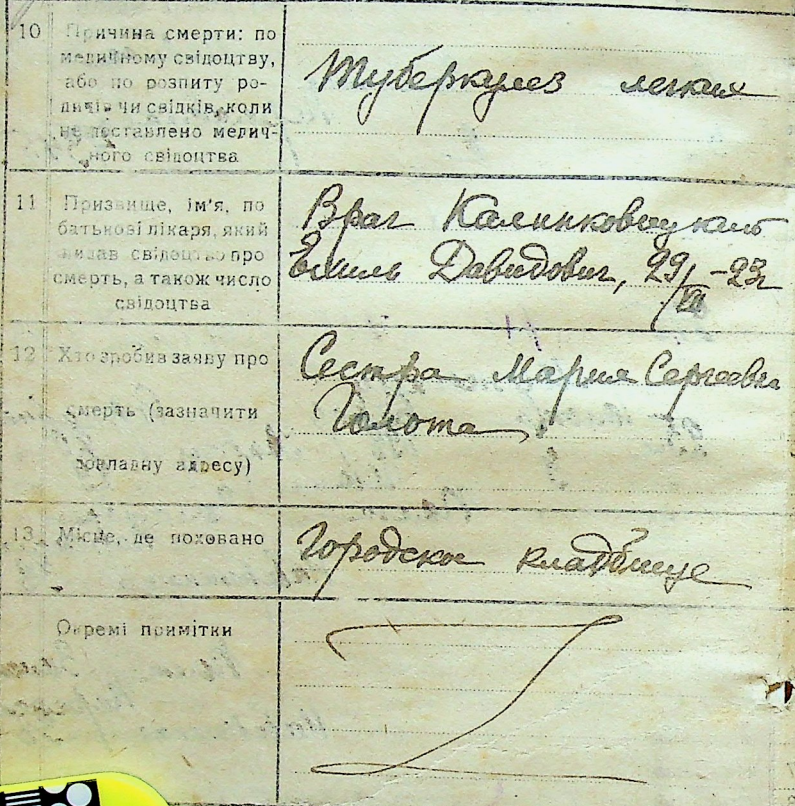 10 Причина смерти: по
медичному свідоцтву,
або по розпиту ро-
дичів чи свідків, коли
не доставлено медич-
ного свідоцтва
Туберкулез легких
11 Призвище, ім'я, по
батькові лікаря, який
видав свідоцтво про
смерть, а також число
свідоцтва
Врач
Емиль Давидович, 29/VII-23г
12 Хто зробив заяву про
смерть (зазначити
докладну адресу)
Сестра Мария Сергеевна
Голота
13 Місце, де поховано
Городское кладбище
Окремі примітки